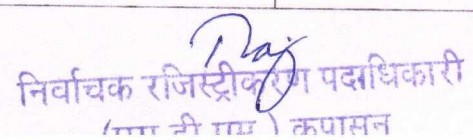 Raj
निर्वाचक रजिस्ट्रीकरण पदाधिकारी
(एस.डी.एम.) कपासन